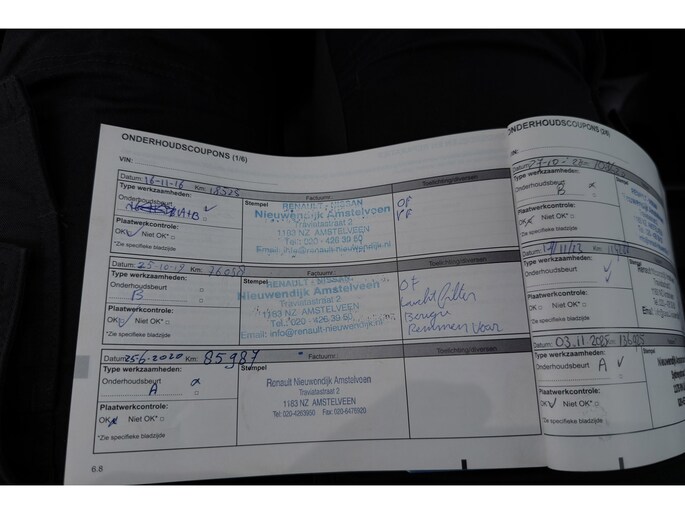 ONDERHOUDSCOUPONS (1/6)
VIN:
Datum: 16-11-16 Km:
Factuurnr.:
Toelichting/diversen
Type werkzaamheden:
Onderhoudsbeurt
A+B
Plaatwerkcontrole:
OK Niet OK*
*Zie specifieke bladzijde
Stempel
RENAULT - NISSAN
Nieuwendijk Amstelveen
Traviatastraat 2
1183 NZ AMSTELVEEN
Tel.: 020 - 426 39 50
Email: info@renault-nieuwendijk.nl
OF
Datum: 25-10-19 Km: 76038
Factuurnr.:
Toelichting/diversen
Type werkzaamheden:
Onderhoudsbeurt
B
Plaatwerkcontrole:
OK Niet OK*
*Zie specifieke bladzijde
Stempel
RENAULT - NISSAN
Nieuwendijk Amstelveen
Traviatastraat 2
1183 NZ AMSTELVEEN
Tel.: 020 - 426 39 50
Email: info@renault-nieuwendijk.nl
OF
Luchtfilter
Remmen voor
Datum: 25-6-2020 Km: 85987
Factuurnr.:
Toelichting/diversen
Type werkzaamheden:
Onderhoudsbeurt
A
Plaatwerkcontrole:
OK Niet OK*
*Zie specifieke bladzijde
Stempel
Renault Nieuwendijk Amstelveen
Traviatastraat 2
1183 NZ AMSTELVEEN
Tel: 020-4263950 Fax: 020-6476920
6.8
ONDERHOUDSCOUPONS (2/6)
VIN:
Datum:
Type werkzaamheden:
Onderhoudsbeurt
B
Plaatwerkcontrole:
OK Niet OK*
*Zie specifieke bladzijde
Stempel
Datum:
Type werkzaamheden:
Onderhoudsbeurt
Plaatwerkcontrole:
OK Niet OK*
*Zie specifieke bladzijde
Stempel
Datum: 03.11 2025 Km:
Type werkzaamheden:
Onderhoudsbeurt A
Plaatwerkcontrole:
OK Niet OK*
*Zie specifieke bladzijde
Stempel